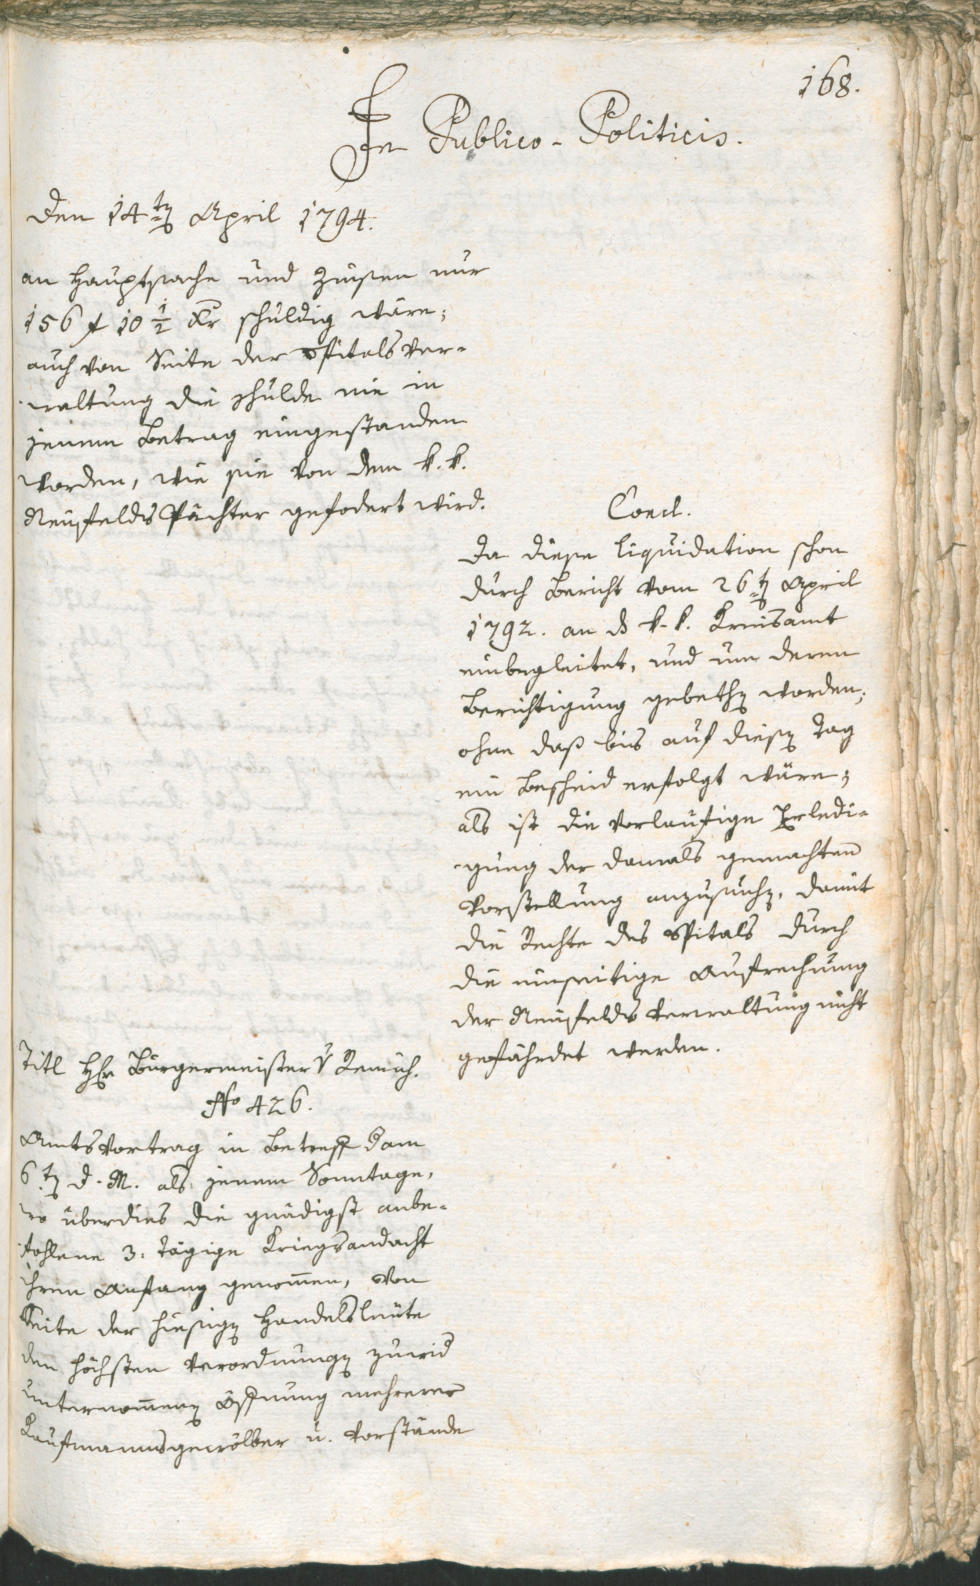 168.
In Publico-Politicis.
Den 14ten April 1794.
an Hauptsache und Zinsen nur
156 f 10 1/2 Xr schuldig wäre;
auch von Seite der Spitalsver-
waltung die Schulde nie in
jenem Betrag eingestanden
worden, wie sie von dem k. k.
Neufelds Pächter gefodert wird.
Concl.
Da diese liquidation schon
durch Bericht vom 26ten April
1792. an das k. k. Kreisamt
einbegleitet, und um deren
Berichtigung gebethen worden;
ohne daß bis auf diesen Tag
ein Bescheid erfolgt wäre;
als ist die vorläufige Erledi-
gung der damals gemachten
Vorstellung anzusuchen, damit
die Rechte des Spitals durch
die einseitige Aufrechnung
der Neufelds Verwaltung nicht
gefährdet werden.
Titl Hr Bürgermeister v Remich.
No 426.
Amtsvortrag in Betreff dam
6ten d. M. als jenem Sonntage,
wo überdies die gnädigst anbe-
fohlene 3. Tägige Kriegsandacht
ihren Anfang genommen, von
Seite der hiesigen Handelsleute
den höchsten Verordnungen zuwid
unternommenen Öfnung mehrerer
Kaufmannsgewölber u. Vorstände